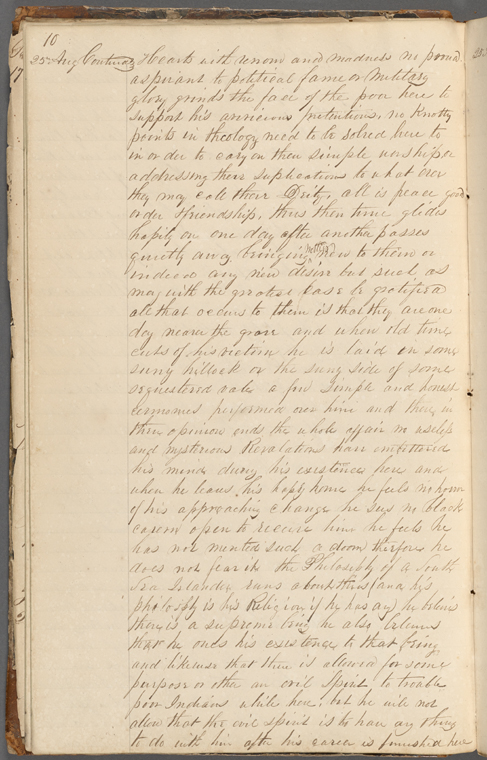 10
25th Aug Continued Hearts with venom and madness no proud
aspirant to political fame or Military
glory grinds the face of the poor here to
support his pretentions, no Knotty
points in theology need to be solved here to
in order to carry on their simple worship or
addressing their suplications to what ever
they may call their Deity, all is peace good
order & friendship, thus their time glides
hapily on one day after another passes
quietly away bringing nothing new to them or
indeed any new desire but such as
may with the greatest ease be gratified
all that occurs to them is that they are one
day nearer the grave and when old time
cuts of his victim he is laid in some
suny hillock or the suny side of some
sequestered vale a few simple and honest
ceremonies performed over him and there in
their opinion ends the whole affair no useless
and mysterious Revalations have embittered
his mind during his existence here and
when he leaves his hapy home he feels no horror
of his approaching change he sees no black
cavern open to receive him he feels he
has not merited such a doom therefore he
does not fear it the Philosophy of a South
Sea Islander runs about thus (and his
philosophy is his Religion if he has any) he beleives
there is a supreme being he also beleives
that he owes his existence to that being
and likewise that there is allowed for some
purpose or other an evil spirit to trouble
poor Indians while here, but he will not
allow that the evil spirit is to have any thing
to do with him after his career is finnished here